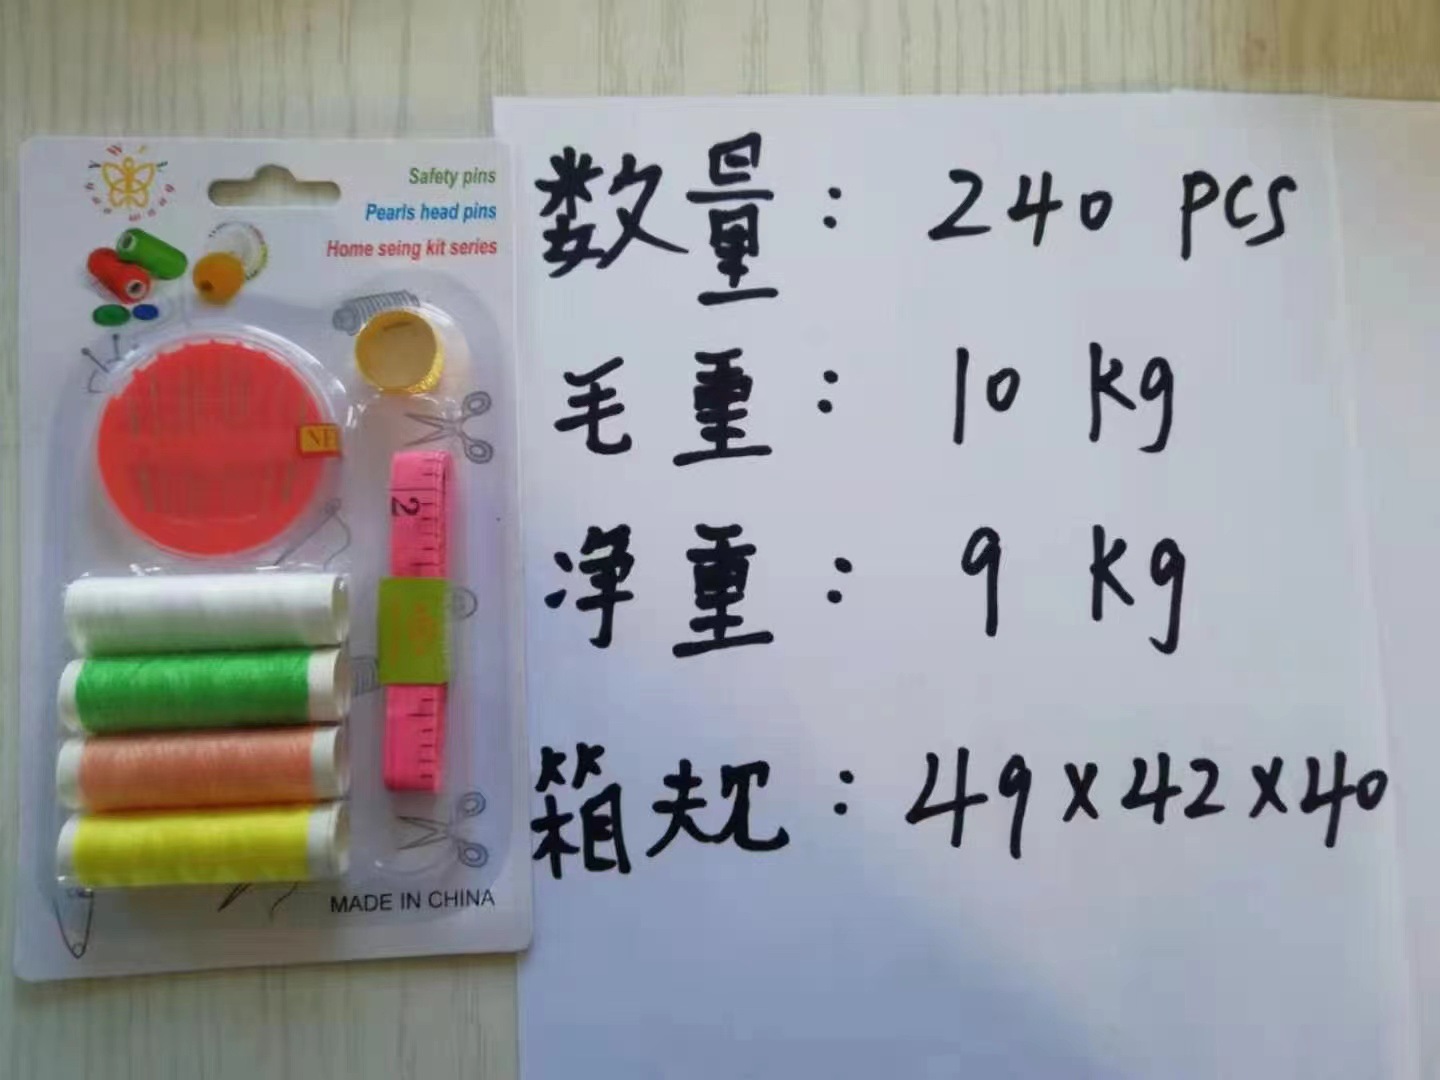 Safety pins
Pearls head pins
Home seing kit series
2
MADE IN CHINA
数量: 240 pcs
毛重: 10 kg
净重: 9 kg
箱规: 49×42×40